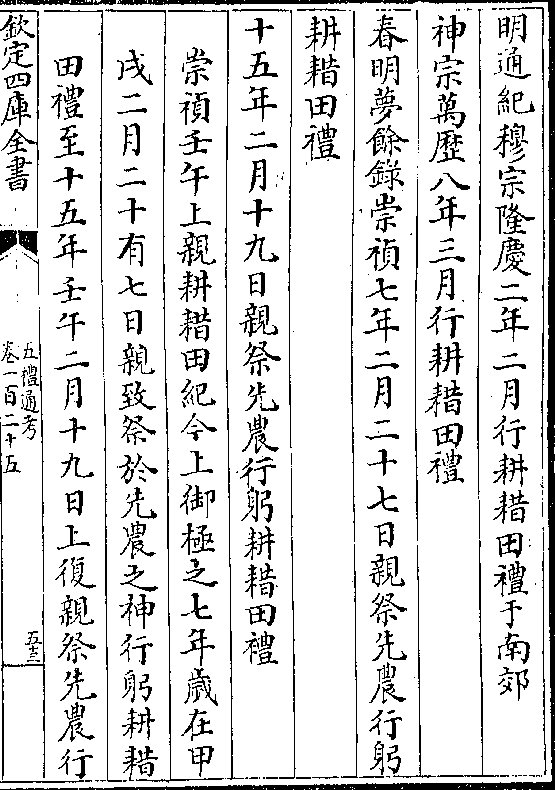 明通紀穆宗隆慶二年二月行耕耤田禮于南郊
神宗萬歷八年三月行耕耤田禮
春明夢餘錄崇禎七年二月二十七日親祭先農行躬
耕耤田禮
十五年二月十九日親祭先農行躬耕耤田禮
崇禎壬午上親耕耤田紀今上御極之七年歲在甲
戌二月二十有七日親致祭於先農之神行躬耕耤
田禮至十五年壬午二月十九日上復親祭先農行
欽定四庫全書
五禮通考
卷一百二十五
五十三